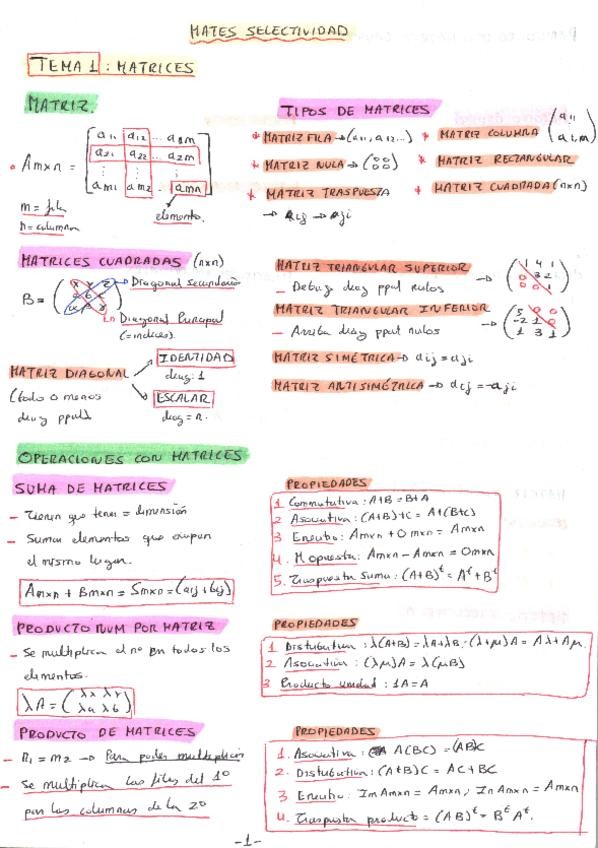 MATES SELECTIVIDAD
TEMA 1: MATRICES
MATRIZ.
Amxn = [a11 a12 ... a2m
a21 a22 ... a2m
am1 am2 ... amn]
m = fila
n = columna
elemento.
TIPOS DE MATRICES
* MATRIZ FILA → (a11, a12...)
* MATRIZ COLUMNA (a11
* MATRIZ NULA → (0 0
0 0)
* MATRIZ RECTANGULAR
* MATRIZ TRASPUESTA
→ aij → aji
* MATRIZ CUADRADA (nxn)
MATRICES CUADRADAS (nxn)
B =
Diagonal secundaria
Diagonal Principal
(= indices).
MATRIZ DIAGONAL
(todo 0 menos
diag ppal)
IDENTIDAD
diag: 1
ESCALAR
diag = n.
MATRIZ TRIANGULAR SUPERIOR
- Debajo diag ppal nulos → (1 4 1
0 3 2
0 0 1)
MATRIZ TRIANGULAR INFERIOR
- Arriba diag ppal nulos → (5 0 0
-2 1 0
1 3 1)
MATRIZ SIMÉTRICA → aij = aji
MATRIZ ANTISIMÉTRICA → aij = -aji
OPERACIONES CON MATRICES
SUMA DE MATRICES
- Tienen que tener = dimensión
- Suman elementos que ocupan
el mismo lugar.
Amxn + Bmxn = Smxn = (aij + bij)
PROPIEDADES
1 Conmutativa: A+B = B+A
2 Asociativa: (A+B)+C = A+(B+C)
3 E neutro: Amxn + Omxn = Amxn
4. M opuesta: Amxn - Amxn = Omxn
5. Traspuesta Suma: (A+B)^t = A^t + B^t
PRODUCTO NUM POR MATRIZ
- Se multiplica el nº en todos los
elementos.
λA = (λx λy
λa λb)
PROPIEDADES
1 Distributiva: λ(A+B) = λA+λB · (λ+μ)A = Aλ + Aμ.
2 Asociativa: (λμ)A = λ(μB)
3 Producto unidad: 1A = A
PRODUCTO DE MATRICES
- n1 = m2 → Para poder multiplicar
- Se multiplica las filas del 1º
por las columnas de la 2º
PROPIEDADES
1. Asociativa: A(BC) = (AB)C
2. Distributiva: (A+B)C = AC + BC
3 E neutro: Im Amxn = Amxn; In Amxn = Amxn
4. Traspuesta producto = (AB)^t = B^t A^t.
-1-